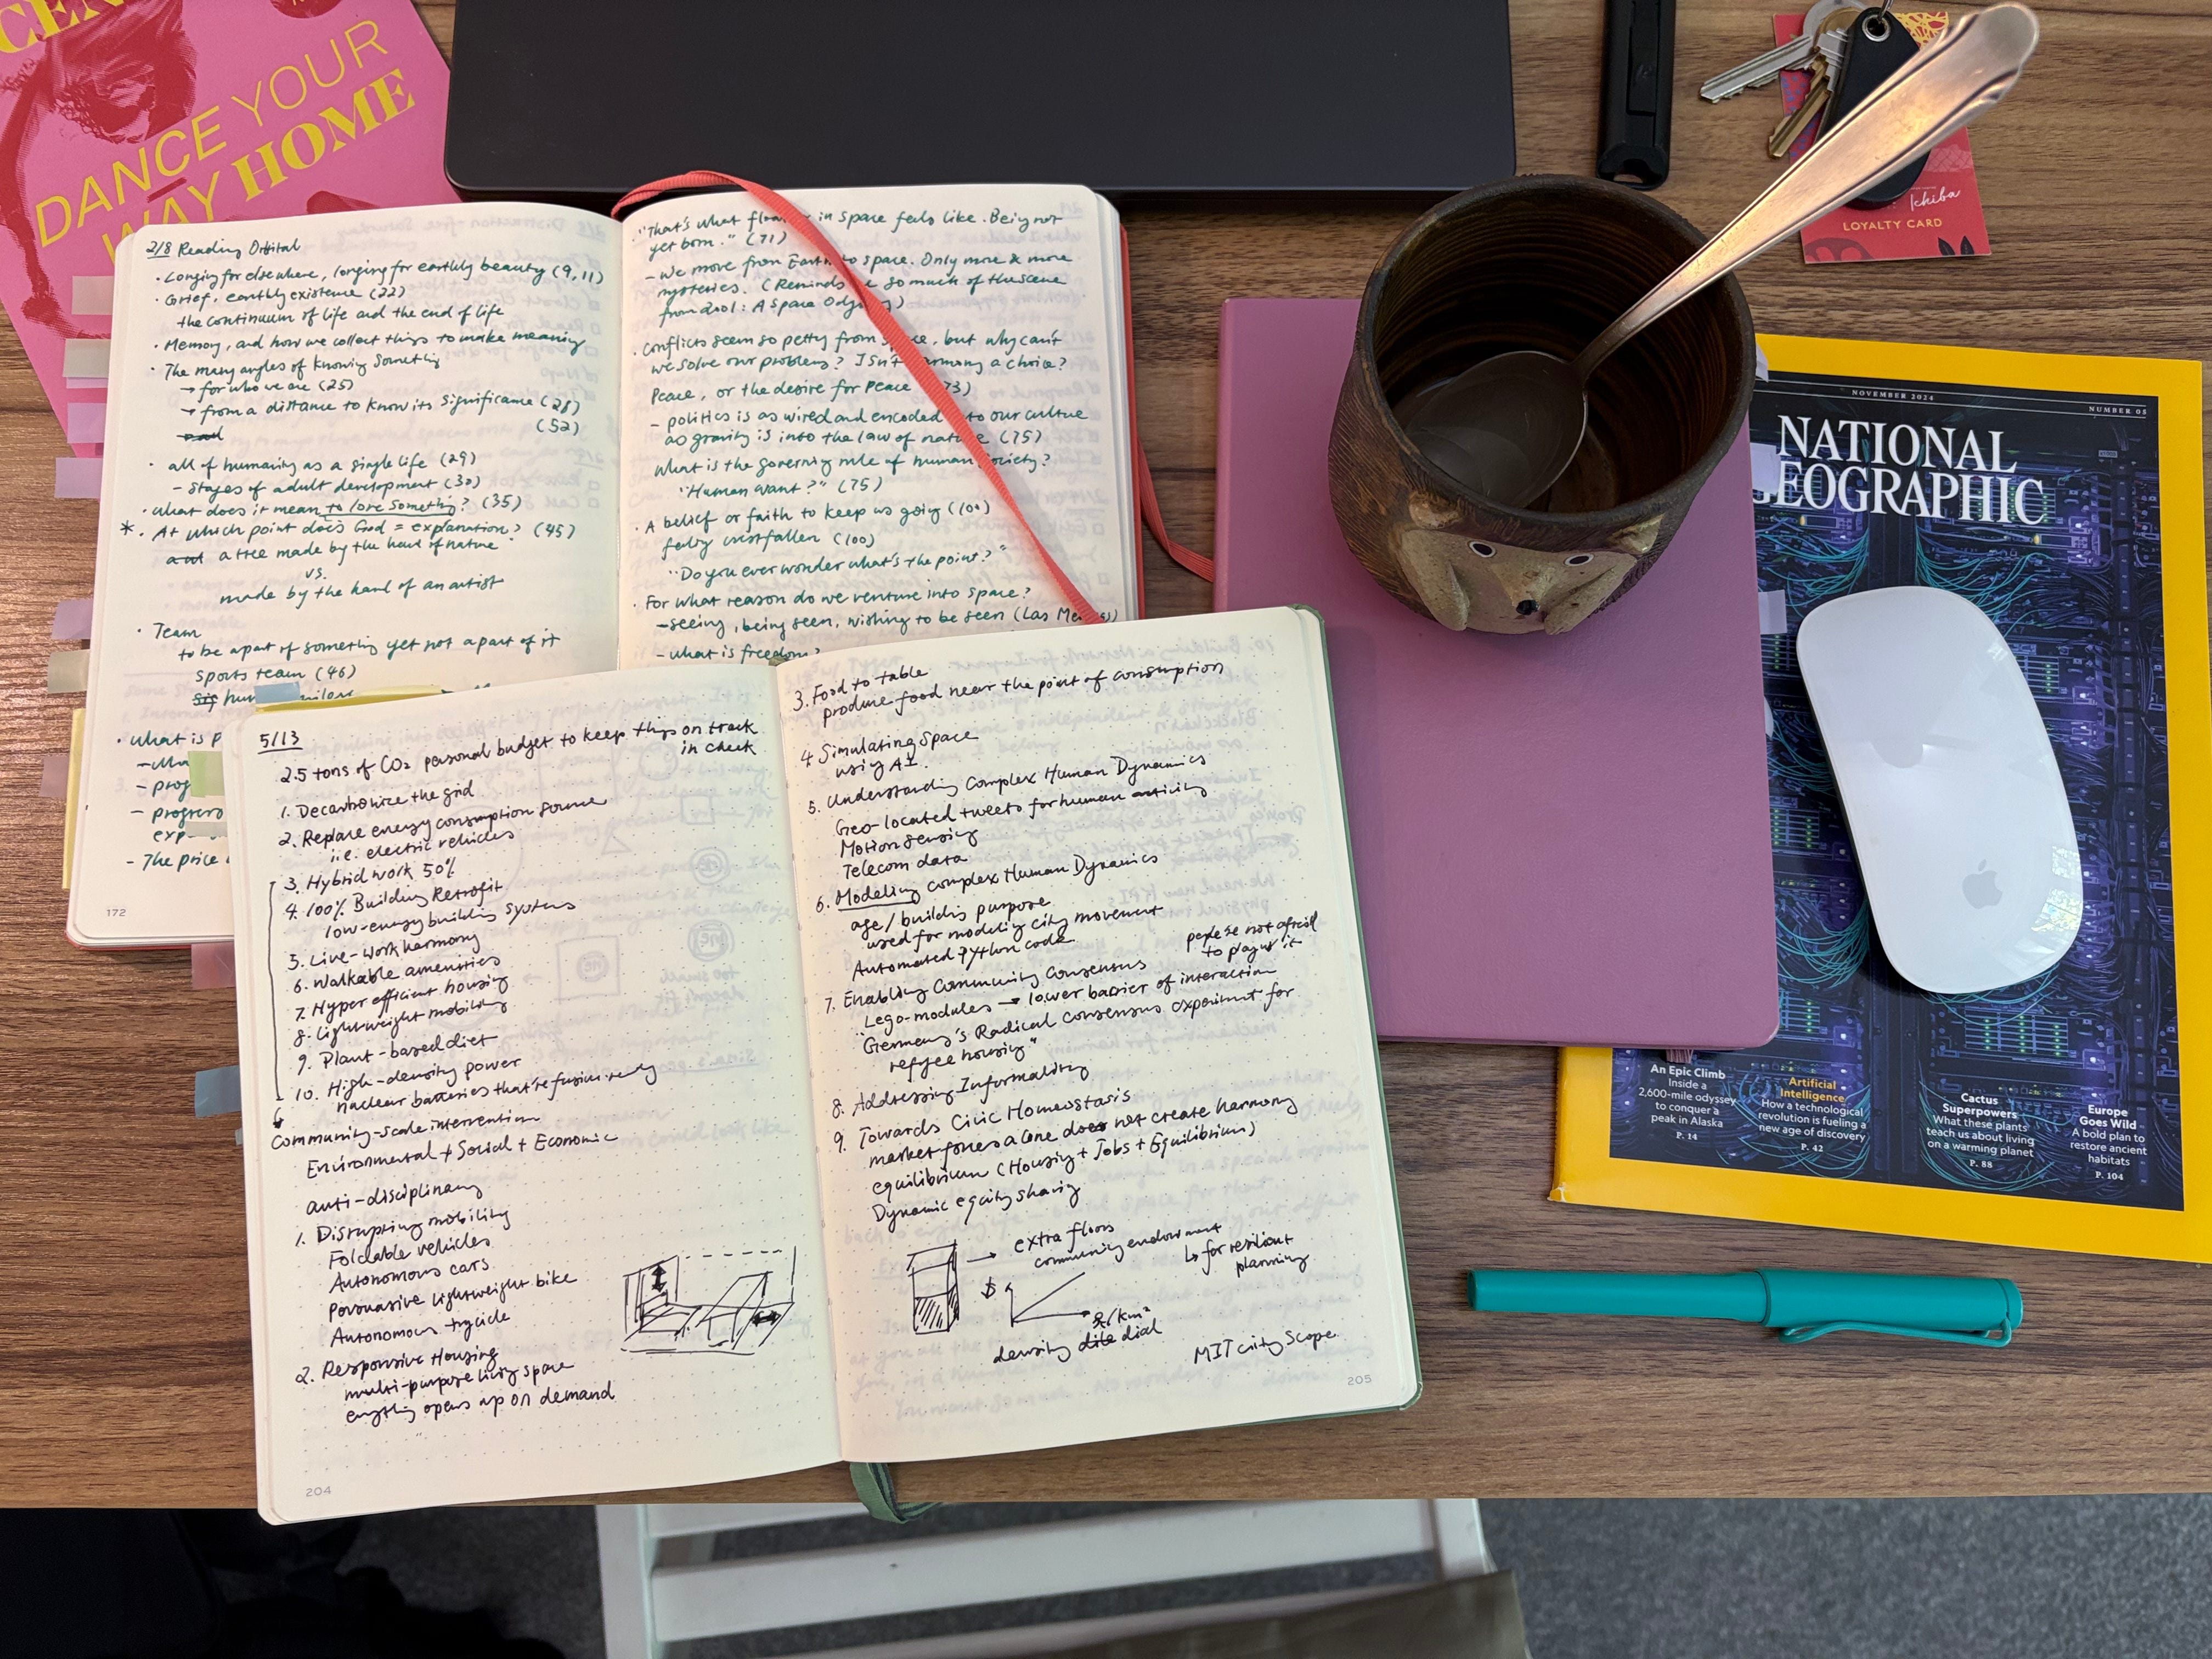 CEN
DANCE YOUR
WAY HOME
2/8 Reading Orbital
· Longing for elsewhere, longing for earthly beauty (9, 11)
· Grief, earthly existence (22)
the continuum of life and the end of life
· Memory, and how we collect things to make meaning
· The many angles of knowing something
→ for who we are (25)
→ from a distance to know its significance (28)
(52)
· all of humanity as a single life (29)
- stages of adult development (30)
· what does it mean to love something? (35)
* · At which point does God = explanation? (45)
a tree made by the hand of nature
vs.
made by the hand of an artist
· Team
to be a part of something yet not a part of it
sports team (46)
· What is P
- prog
- progress
exp
- The price
172
· "That's what in space feels like. Being not
yet born." (71)
- We move from Earth to space. Only more & more
mysteries. (Reminds so much of the scene
from 2001: A Space Odyssey)
· Conflicts seem so petty from space, but why can't
we solve our problems? Isn't harmony a choice?
Peace, or the desire for peace (73)
- politics is as wired and encoded into our culture
as gravity is into the law of nature (75)
What is the governing rule of human society?
"Human want?" (75)
· A belief or faith to keep us going (100)
feeling crestfallen (100)
"Do you ever wonder what's the point?"
· For what reason do we venture into space?
- seeing, being seen, wishing to be seen (Las Me)
- what is freedom?
5/13
2.5 tons of CO₂ personal budget to keep things on track
in check
1. Decarbonize the grid
2. Replace energy consumption source
i.e. electric vehicles
3. Hybrid work 50%
4. 100% Building Retrofit
low-energy building systems
5. Live-work harmony
6. Walkable amenities
7. Hyper efficient housing
8. Lightweight mobility
9. Plant-based diet
10. High-density power
nuclear batteries that're fusion-ready
Community-scale intervention
Environmental + Social + Economic
anti-disciplinary
1. Disrupting mobility
Foldable vehicles
Autonomous cars
Persuasive lightweight bike
Autonomous trycicle
2. Responsive Housing
multi-purpose living space
opens up on demand
204
3. Food to table
produce food near the point of consumption
4. Simulating Space
using AI.
5. Understanding Complex Human Dynamics
Geo-located tweets for human activity
Motion sensing
Telecom data
6. Modeling complex Human Dynamics
age / building purpose
used for modeling city movement
Automated Python code
7. Enabling Community Consensus
people not afraid
to play w/ it
Lego-modules → lower barrier of interaction
"Germany's Radical consensus experiment for
refugee housing"
8. Addressing Informality
9. Towards Civic Homeostasis
market forces alone does not create harmony
equilibrium (Housing + Jobs + Equilibrium)
Dynamic equity sharing
→ extra floors
community endowment
↳ for resilient
planning
$
/km²
density dile dial
MIT city Scope
205
Ichiba
LOYALTY CARD
NOVEMBER 2024
NUMBER 05
NATIONAL
GEOGRAPHIC
An Epic Climb
Inside a
2,600-mile odyssey
to conquer a
peak in Alaska
P. 14
Artificial
Intelligence
How a technological
revolution is fueling a
new age of discovery
P. 42
Cactus
Superpowers
What these plants
teach us about living
on a warming planet
P. 88
Europe
Goes Wild
A bold plan to
restore ancient
habitats
P. 104